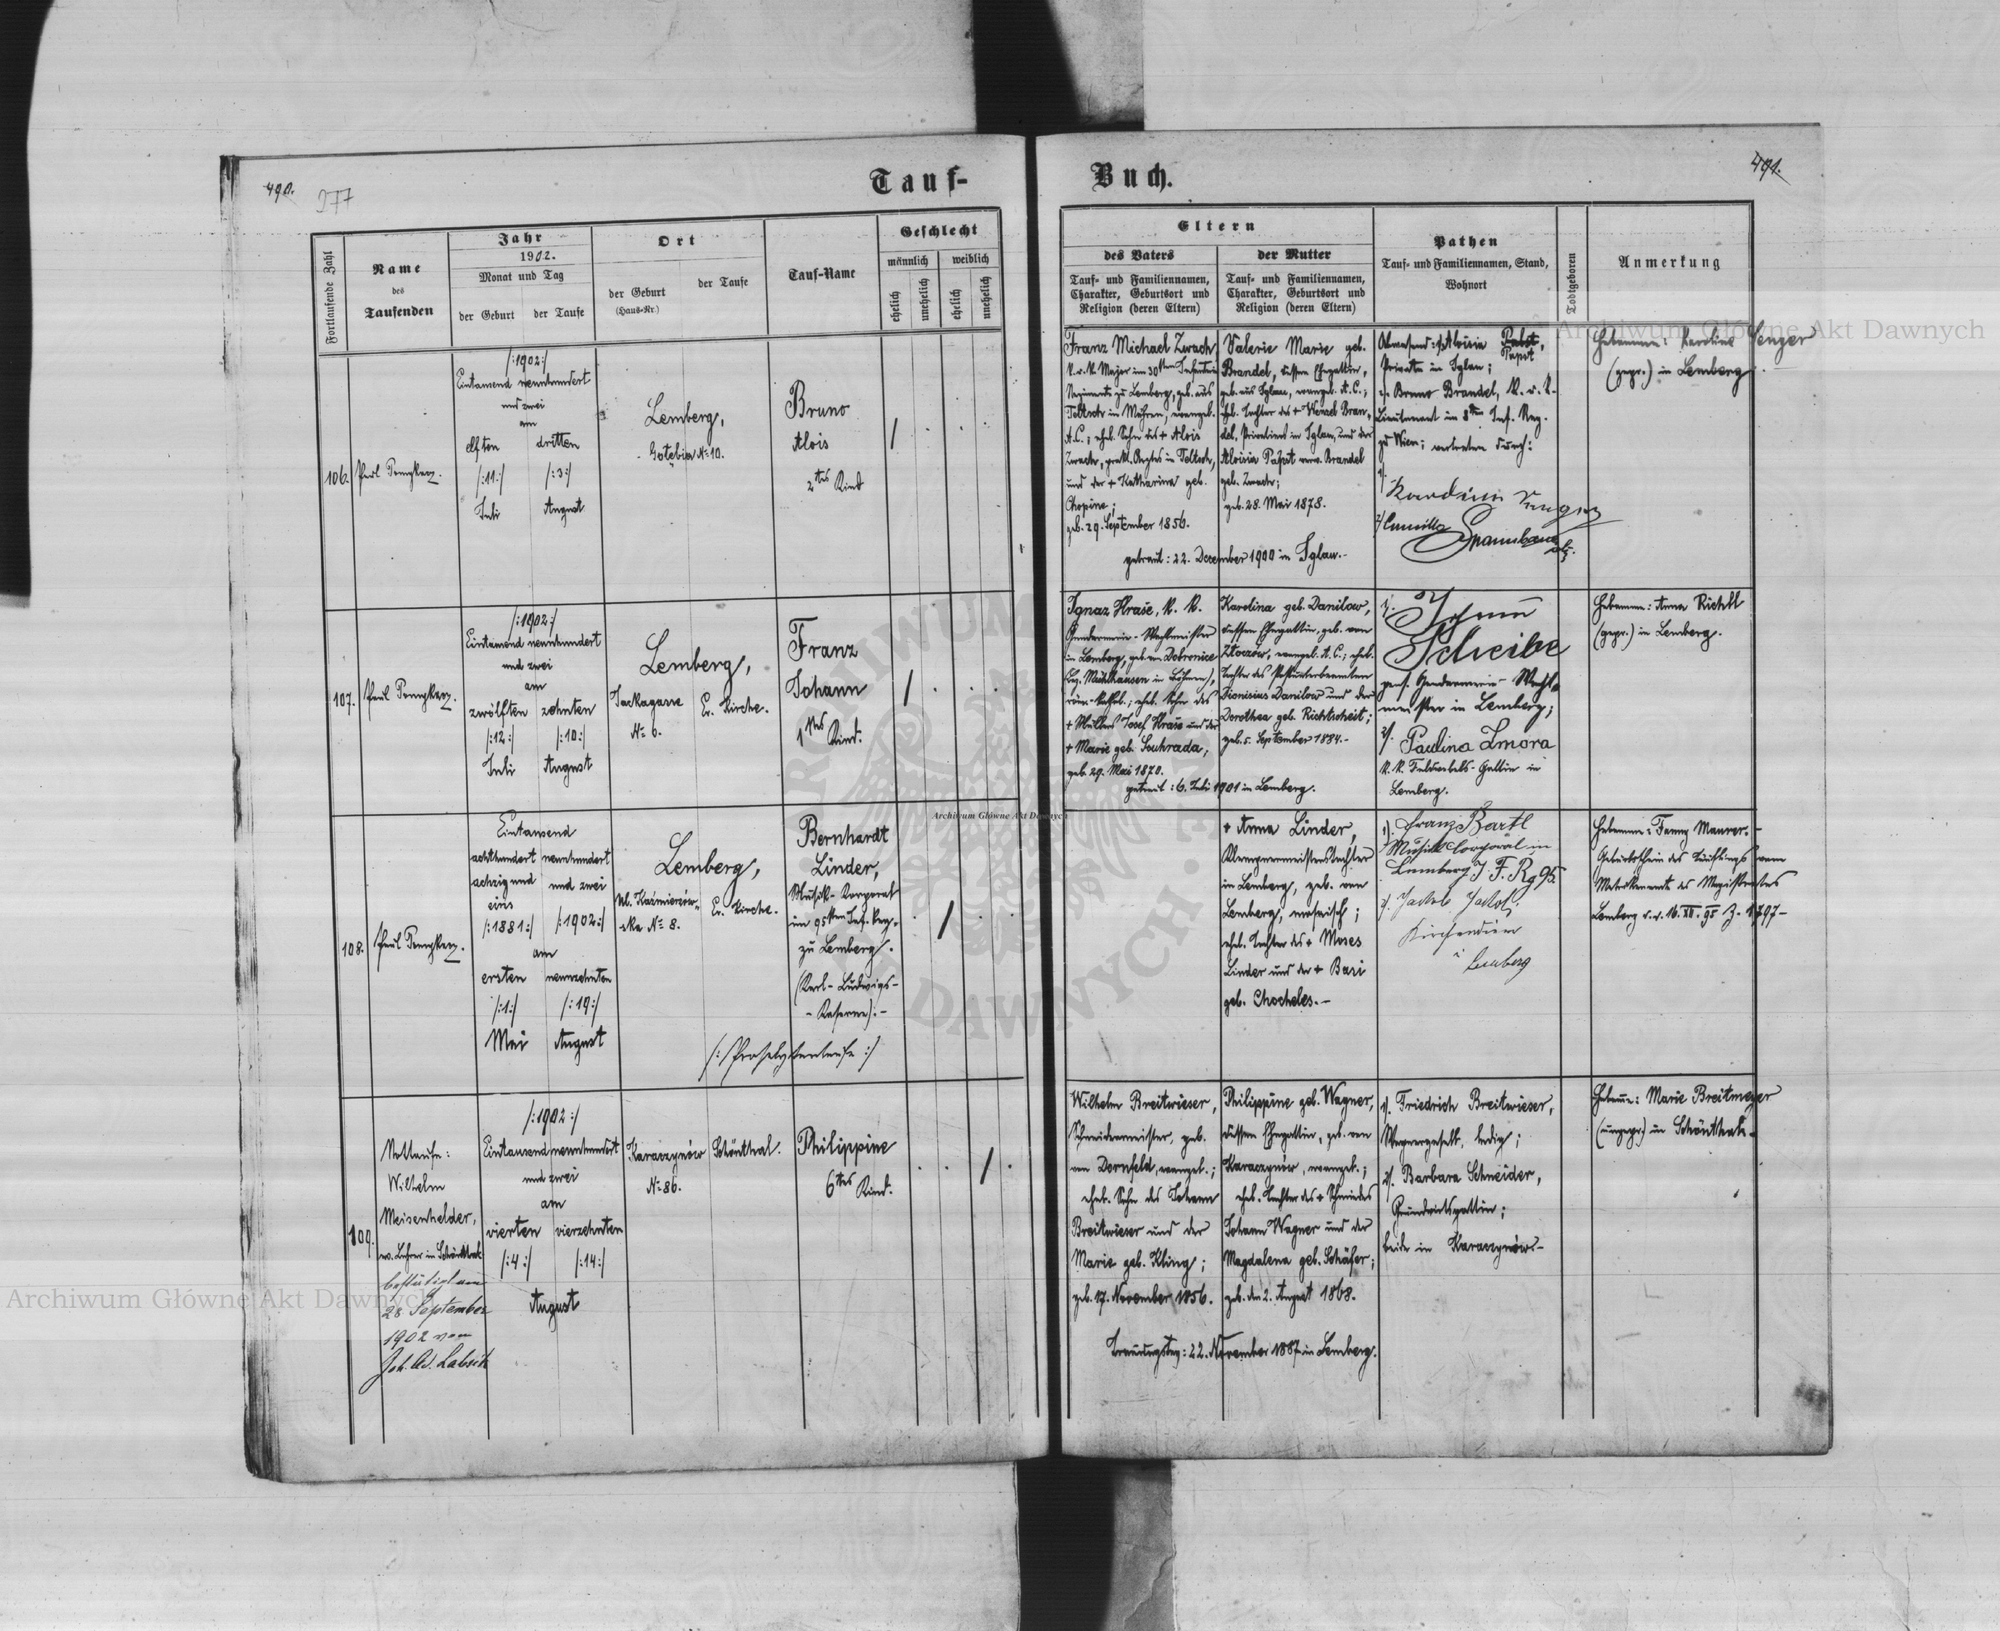 490.
277
Tauf-
Buch.
491.
Fortlaufende Zahl
Name
des
Taufenden
Jahr
1902.
Monat und Tag
der Geburt
der Taufe
Ort
der Geburt
(Haus-Nr.)
der Taufe
Tauf-Name
Geschlecht
männlich
weiblich
ehelich
unehelich
ehelich
unehelich
Eltern
des Vaters
Tauf- und Familiennamen,
Charakter, Geburtsort und
Religion (deren Eltern)
der Mutter
Tauf- und Familiennamen,
Charakter, Geburtsort und
Religion (deren Eltern)
Pathen
Tauf- und Familiennamen, Stand,
Wohnort
Todtgeboren
Anmerkung
106.
/:1902:/
Eintausend neunhundert
und zwei
am
elften
dritten
/:11:/
/:3:/
Juli
August
Lemberg,
Nº 10.
Bruno
Alois
2tes Kind
Franz Michael Zwach
k. u. k. Major im 30sten Infanterie
Regiments zu Lemberg, geb. aus
Teltsch in Mähren, evangel.
A.C.; ehel. Sohn des + Alois
Zwach, prakt. Arztes in Teltsch,
und der + Katharina geb.
Chopine;
geb. 29. September 1856.
Valerie Marie geb.
Brandel, dessen Ehegattin,
geb. aus Iglau, evangel. A.C.;
ehel. Tochter des + Wenzel Bran-
del, Privatiers in Iglau, und der
Aloisia Papst verw. Brandel
geb. Zwach;
geb. 28. Mai 1878.
getraut: 22. December 1900 in Iglau.-
Abwesend: 1/ Aloisia Pabst,
Papst
Private in Iglau;
2/. Bruno Brandel, k. u. k.
Lieutenant im 8ten Inf. Reg.
zu Wien; vertreten durch:
1/.
2/
Hebamme: Karoline Senzer
(gepr.) in Lemberg
107.
/:1902:/
Eintausend neunhundert
und zwei
am
zwölften
zehnten
/:12:/
/:10:/
Juli
August
Lemberg,
Nº 6.
Ev. Kirche.
Franz
Johann
1tes Kind.
Ignaz Hraše, k. k.
Gendarmerie-Wachtmeister
in Lemberg, geb. von Dobronice
(Bez. Mühlhausen in Böhmen),
röm.-kathol.; ehel. Sohn des
+ Müllers Josef Hraše und der
+ Marie geb. Souhrada,
geb. 29. Mai 1870.
Karolina geb. Danilow,
dessen Ehegattin, geb. von
Złoczów, evangel. A.C.; ehel.
Tochter des
Dionisius Danilow und der
Dorothea geb. Richtscheit;
geb. 5. September 1884.-
getraut: 6. Juli 1901 in Lemberg.
1/.
Scheibe
pens. Gendarmerie-Wacht-
meister in Lemberg;
2/. Paulina Zmora
k. k. Feldwebels-Gattin in
Lemberg.
Hebamme: Anna Richtl
(gepr.) in Lemberg.
108.
Eintausend
achthundert
neunhundert
achzig und
und zwei
eins
/:1881:/
/:1902:/
am
ersten
neunzehnten
/:1:/
/:19:/
Mai
August
Lemberg,
Nº 8.
Ev. Kirche.
Bernhardt
Linder,
Musik-Korporal
im 95sten Inf. Reg.
zu Lemberg.
(Karl-Ludwigs-
-Kaserne).-
/:Proselytentaufe:/
+ Anna Linder,
Klempnermeisterstochter
in Lemberg, geb. von
Lemberg; mosaisch;
ehel. Tochter des + Moses
Linder und der + Basi
geb. Chocheles.-
1). Franz Bartl
Musik Corporal in
Lemberg J. F. Rg 95.
2/.
Kirchendiener
Lemberg
Hebamme: Fanny Maurer.-
Geburtsschein des Täuflings vom
Matrikenamt des Magistrates
Lemberg
109.
Nottaufe:
Wilhelm
Meisenhelder,
ev. Lehrer in Schönthal
bestätigt am
28 September
1902 von
/:1902:/
Eintausend neunhundert
und zwei
am
vierten
vierzehnten
/:4:/
/:14:/
August
Karaczynów
Nº 86.
Schönthal.
Philippine
6tes Kind.
Wilhelm Breitwieser,
Schneidermeister, geb.
von Dornfeld, evangel.;
ehel. Sohn des Johann
Breitwieser und der
Marie geb. Kling;
geb. 17. November 1856.
Philippine geb. Wagner,
dessen Ehegattin, geb. von
Karaczynów, evangel.;
ehel. Tochter des + Schmiedes
Johann Wagner und der
Magdalena geb. Schäfer;
geb. den 2. August 1868.
Trauungstag: 22. November 1887 in Lemberg.
1/. Friedrich Breitwieser,
Wagnergeselle, ledig;
2/. Barbara Schneider,
Grundwirtsgattin;
beide in Karaczynów-
Hebamme: Marie Breitmeyer
(ungepr.) in Schönthal.
Archiwum Główne Akt Dawnych
Archiwum Główne Akt Dawnych
Archiwum Główne Akt Dawnych